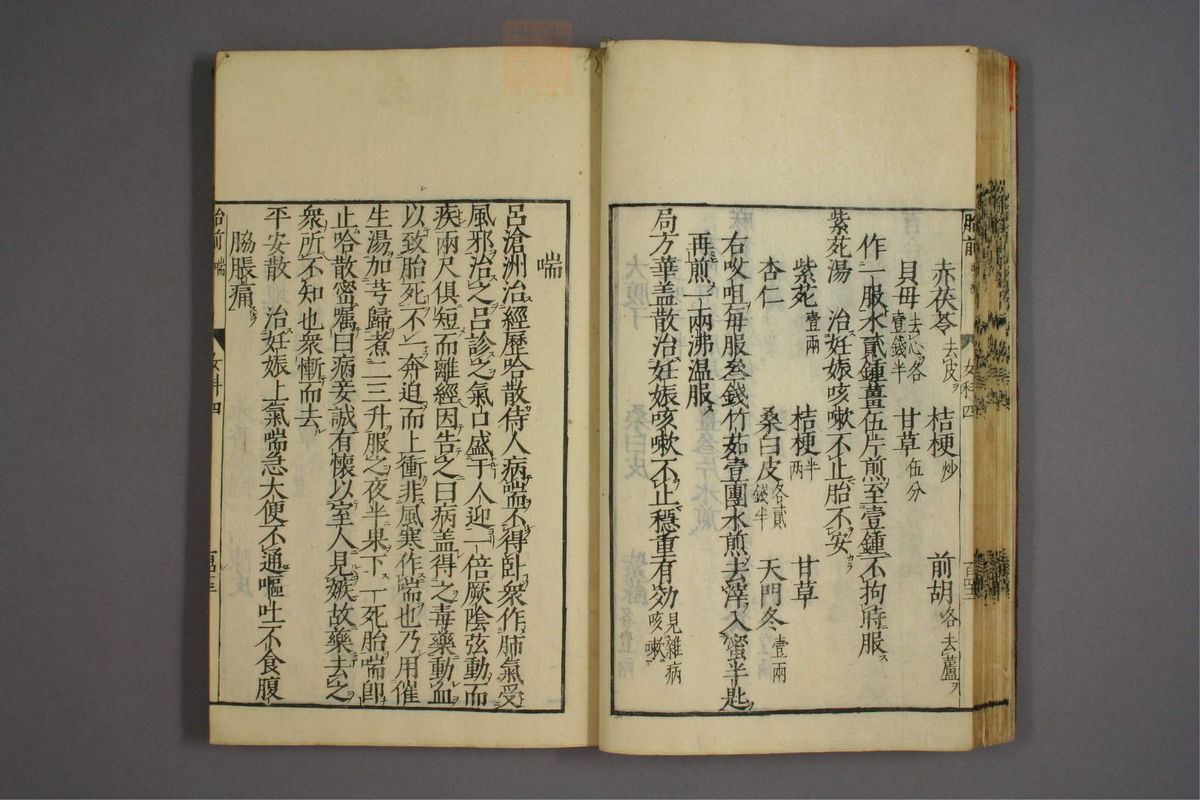 赤茯苓去皮ヲ　桔梗炒　前胡各去蘆ヲ
貝母去心各壹錢半　甘草伍分
作一服水貳鍾薑伍片煎至壹鍾不拘時服
紫菀湯　治妊娠咳嗽不止胎不安
紫菀壹兩　桔梗半兩　甘草
杏仁　桑白皮各貳錢半　天門冬壹兩
右㕮咀每服叄錢竹茹壹團水煎去滓入蜜半匙
再煎一兩沸温服
局方華盖散治妊娠咳嗽不止穩重有効見雜病咳嗽
胎前　女科四　百四三
喘
呂滄洲治經歷哈散侍人病喘不得臥衆作肺氣受
風邪治之呂診之氣口盛于人迎一倍厥陰弦動而
疾兩尺俱短而離經因告之曰病盖得之毒藥動血
以致胎死不下奔迫而上衝非風寒作喘也乃用催
生湯加芎歸煮二三升服之夜半果下一死胎喘即
止哈散密囑曰病妾誠有懷以室人見嫉故藥去之
衆所不知也衆慚而去
平安散　治妊娠上氣喘急大便不通嘔吐不食腹
脇脹痛
胎前　喘　女科四